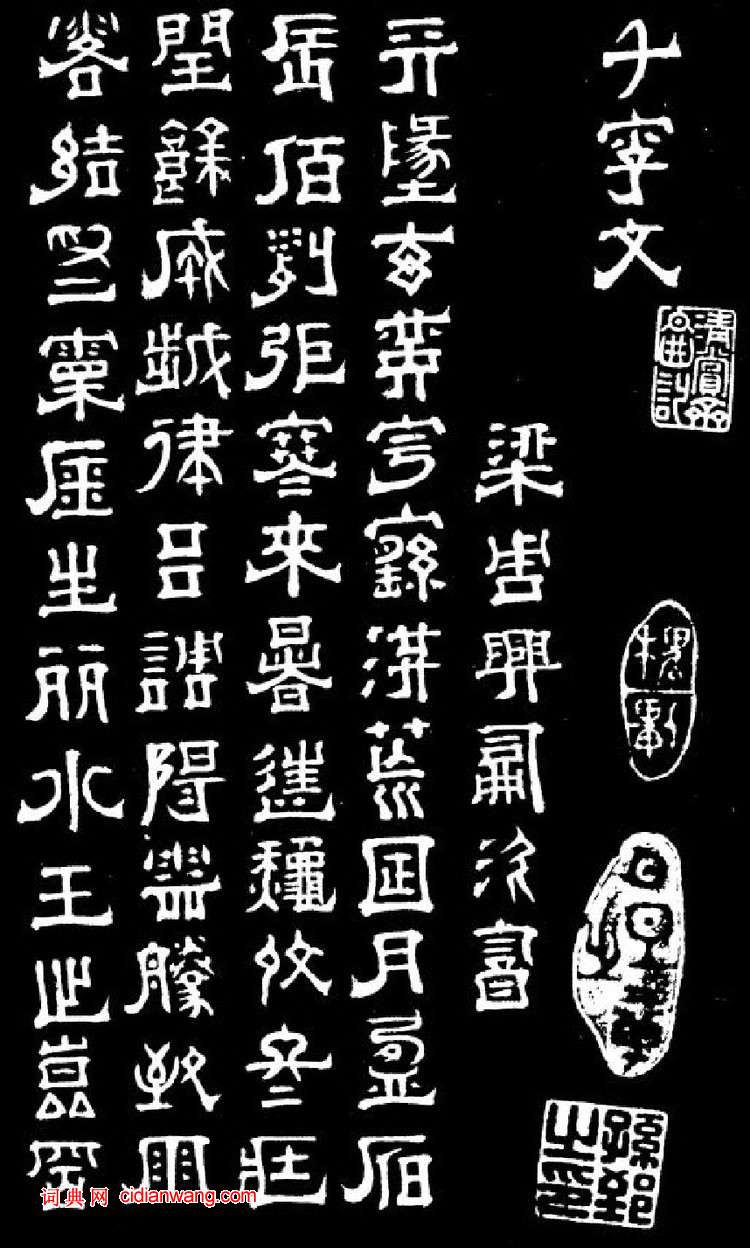 千字文
梁周興嗣次
天地玄黃宇宙洪荒日月盈昃
辰宿列張寒來暑往秋收冬藏
閏餘成歲律呂調陽雲騰致雨
露結為霜金生麗水玉出崑岡
词典网 cidianwang.com